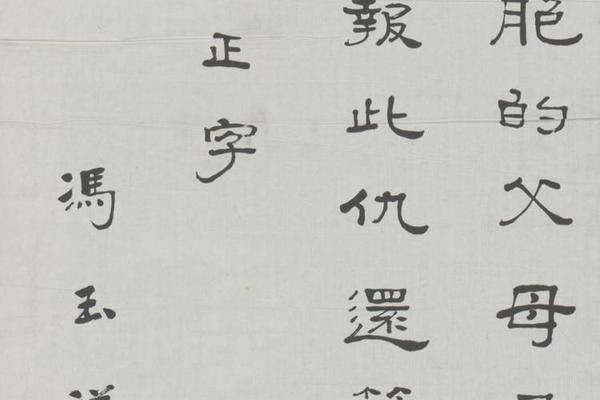 胞的父母
報此仇還
正字
馮玉祥